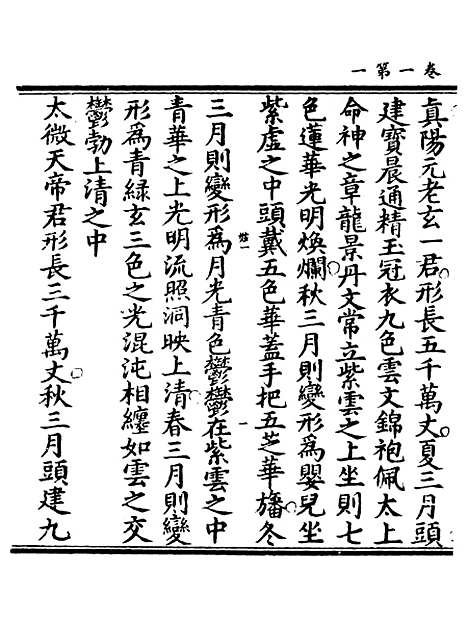 卷一第一
真陽元老玄一君形長五千萬丈夏三月頭
建寶晨通精玉冠衣九色雲文錦袍佩太上
命神之章龍景丹文常立紫雲之上坐則七
色蓮華光明煥爛秋三月則變形為嬰兒坐
紫虛之中頭戴五色華蓋手把五芝華旛冬
三月則變形為月光青色鬱鬱在紫雲之中
青華之上光明流照洞映上清春三月則變
形為青綠玄三色之光混沌相纏如雲之交
鬱勃上清之中
太微天帝君形長三千萬丈秋三月頭建九